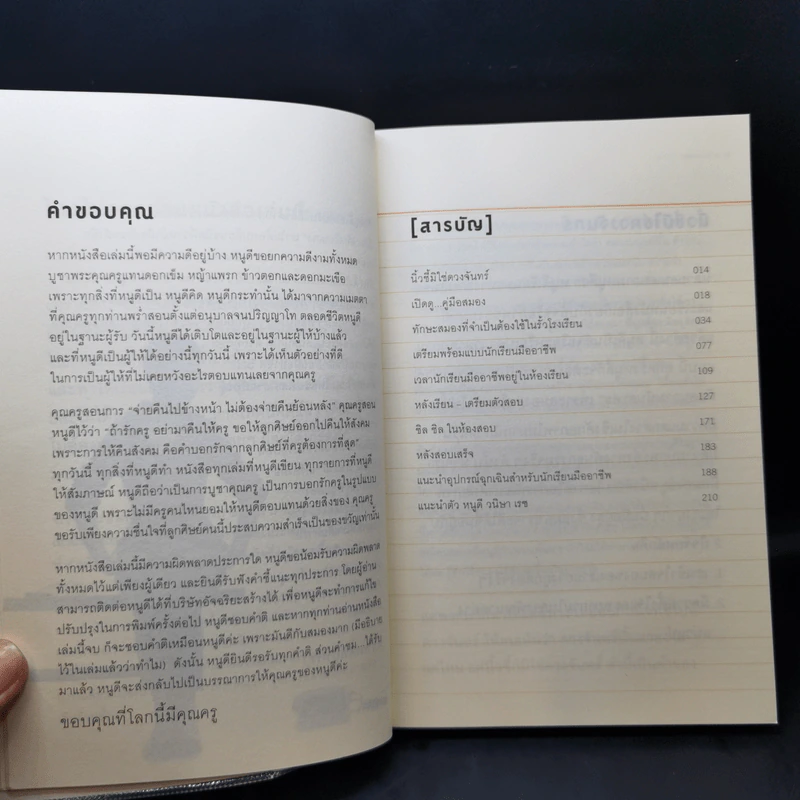 คำขอบคุณ
หากหนังสือเล่มนี้พอมีความดีอยู่บ้าง หนูดีขอยกความดีงามทั้งหมด
บูชาพระคุณครูแทนดอกเข็ม หญ้าแพรก ข้าวตอกและดอกมะเขือ
เพราะทุกสิ่งที่หนูดีเป็น หนูดีคิด หนูดีกระทำนั้น ได้มาจากความเมตตา
ที่คุณครูทุกท่านพร่ำสอนตั้งแต่อนุบาลจนปริญญาโท ตลอดชีวิตหนูดี
อยู่ในฐานะผู้รับ วันนี้หนูดีได้เติบโตและอยู่ในฐานะผู้ให้บ้างแล้ว
และที่หนูดีเป็นผู้ให้ได้อย่างนี้ทุกวันนี้ เพราะได้เห็นตัวอย่างที่ดี
ในการเป็นผู้ให้ที่ไม่เคยหวังอะไรตอบแทนเลยจากคุณครู
คุณครูสอนการ "จ่ายคืนไปข้างหน้า ไม่ต้องจ่ายคืนย้อนหลัง" คุณครูสอน
หนูดีไว้ว่า "ถ้ารักครู อย่ามาคืนให้ครู ขอให้ลูกศิษย์ออกไปคืนให้สังคม
เพราะการให้คืนสังคม คือคำบอกรักจากลูกศิษย์ที่ครูต้องการที่สุด"
ทุกวันนี้ ทุกสิ่งที่หนูดีทำ หนังสือทุกเล่มที่หนูดีเขียน ทุกรายการที่หนูดี
ให้สัมภาษณ์ หนูดีถือว่าเป็นการบูชาคุณครู เป็นการบอกรักครูในรูปแบบ
ของหนูดี เพราะไม่มีครูคนไหนยอมให้หนูดีตอบแทนด้วยสิ่งของ คุณครู
ขอรับเพียงความชื่นใจที่ลูกศิษย์คนนี้ประสบความสำเร็จเป็นของขวัญเท่านั้น
หากหนังสือเล่มนี้มีความผิดพลาดประการใด หนูดีขอน้อมรับความผิดพลาด
ทั้งหมดไว้แต่เพียงผู้เดียว และยินดีรับฟังคำชี้แนะทุกประการ โดยผู้อ่าน
สามารถติดต่อหนูดีได้ที่บริษัทอัจฉริยะสร้างได้ เพื่อหนูดีจะทำการแก้ไข
ปรับปรุงในการพิมพ์ครั้งต่อไป หนูดีชอบคำติ และหากทุกท่านอ่านหนังสือ
เล่มนี้จบ ก็จะชอบคำติเหมือนหนูดีค่ะ เพราะมันดีกับสมองมาก (มีอธิบาย
ไว้ในเล่มแล้วว่าทำไม) ดังนั้น หนูดียินดีรอรับทุกคำติ ส่วนคำชม...ได้รับ
มาแล้ว หนูดีจะส่งกลับไปเป็นบรรณาการให้คุณครูของหนูดีค่ะ
ขอบคุณที่โลกนี้มีคุณครู
[สารบัญ]
นิ้วชี้มิใช่ดวงจันทร์ 014
เปิดดู...คู่มือสมอง 018
ทักษะสมองที่จำเป็นต้องใช้ในรั้วโรงเรียน 034
เตรียมพร้อมแบบนักเรียนมืออาชีพ 077
เวลานักเรียนมืออาชีพอยู่ในห้องเรียน 109
หลังเรียน - เตรียมตัวสอบ 127
ชิล ชิล ในห้องสอบ 171
หลังสอบเสร็จ 183
แนะนำอุปกรณ์ฉุกเฉินสำหรับนักเรียนมืออาชีพ 188
แนะนำตัว หนูดี วนิษา เรซ 210